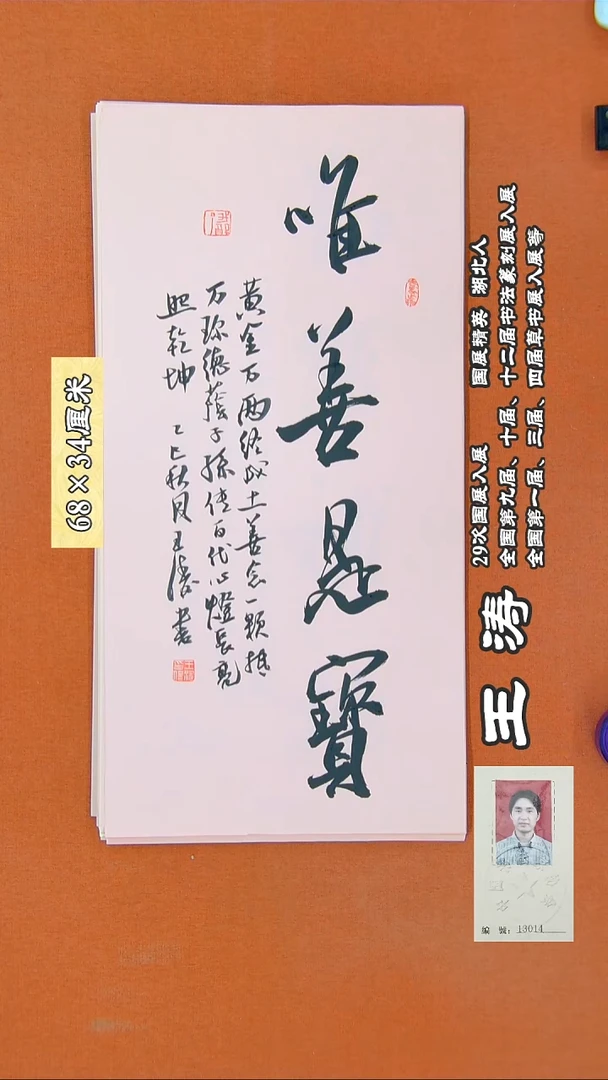 唯善是寶
黄金万兩终成土善念一顆抵
万珍德蔭子孫传百代心燈長亮
照乾坤 乙巳秋月王濤書
68×34厘米
王涛
29次国展入展 国展精英 湖北人
全国第九届、十届、十二届书法篆刻展入展
全国第一届、三届、四届草书展入展等
13014